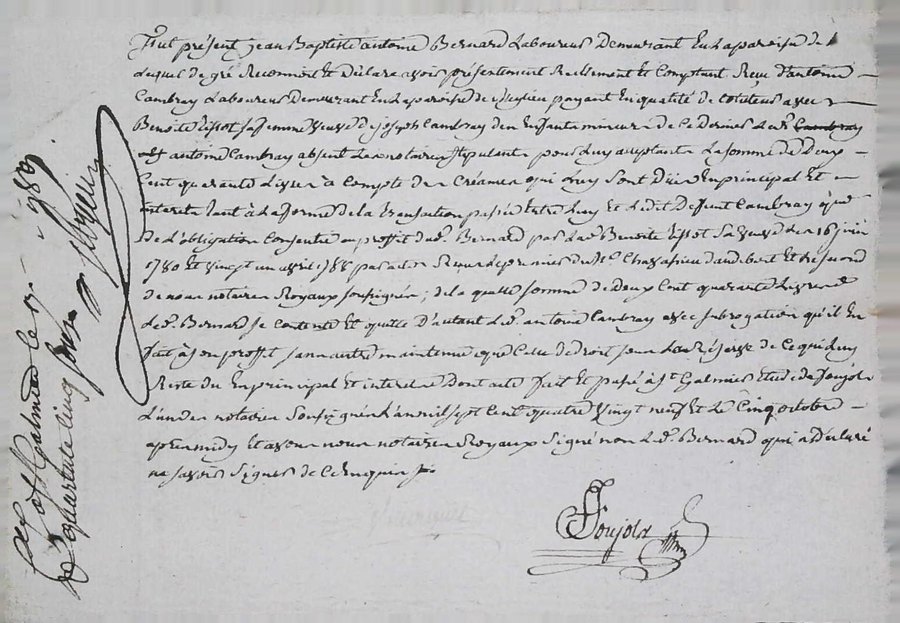 Fut présent jean Baptiste antoine Bernard Laboureur Demeurant En La paroisse de
Lequel de gré Reconnoit Et Déclare avoir présentement Reellement Et Comptant Reçu d'antoine
Cambray Laboureur Demeurant En La paroisse de payant En qualité de Cotuteur avec
Benoite tissot sa femme veuve de joseph Cambray den Enfants mineurs de Ce dernier Le dt Cambray
dt antoine Cambray absent Les notaires stipulants pour Luy acceptants La somme de Deux
Cent quarante Livres à Compte des Créances qui Luy Sont Dües En principal Et
interets tant à La forme de la transaction passée Entre Luy et Ledit Deffunt Cambray que
De L'obligation Consentie au proffit dud. Bernard par Lad. Benoite tissot Sa veuve Les 16 juin
1780 Et vingt un avril 1788 par actes Reçus Le premier du Me Chavassieu d'audibert Et Le second
de nous notaires Royaux soussignés; de la quelle somme de Deux Cent quarante Livres
Led. Bernard se Contente Et quitte D'autant Led. antoine Cambray avec subrogation qu'il En
fait à son proffit sans autre maintenue que Celle de droit sous La Réserve de Ce qui Luy
Reste du En principal Et interets Dont acte fait Et passé à St Galmier Etude de Poujols
L'un des notaires Soussignés L'an mil sept Cent quatre Vingt neuf Et Le Cinq octobre
après midy Et avons nous notaires Royaux Signé non Led. Bernard qui a Déclaré
ne savoir Signer de Ce Enquis
Poujols
a St Galmier le 1789
Rç quarante cinq sous